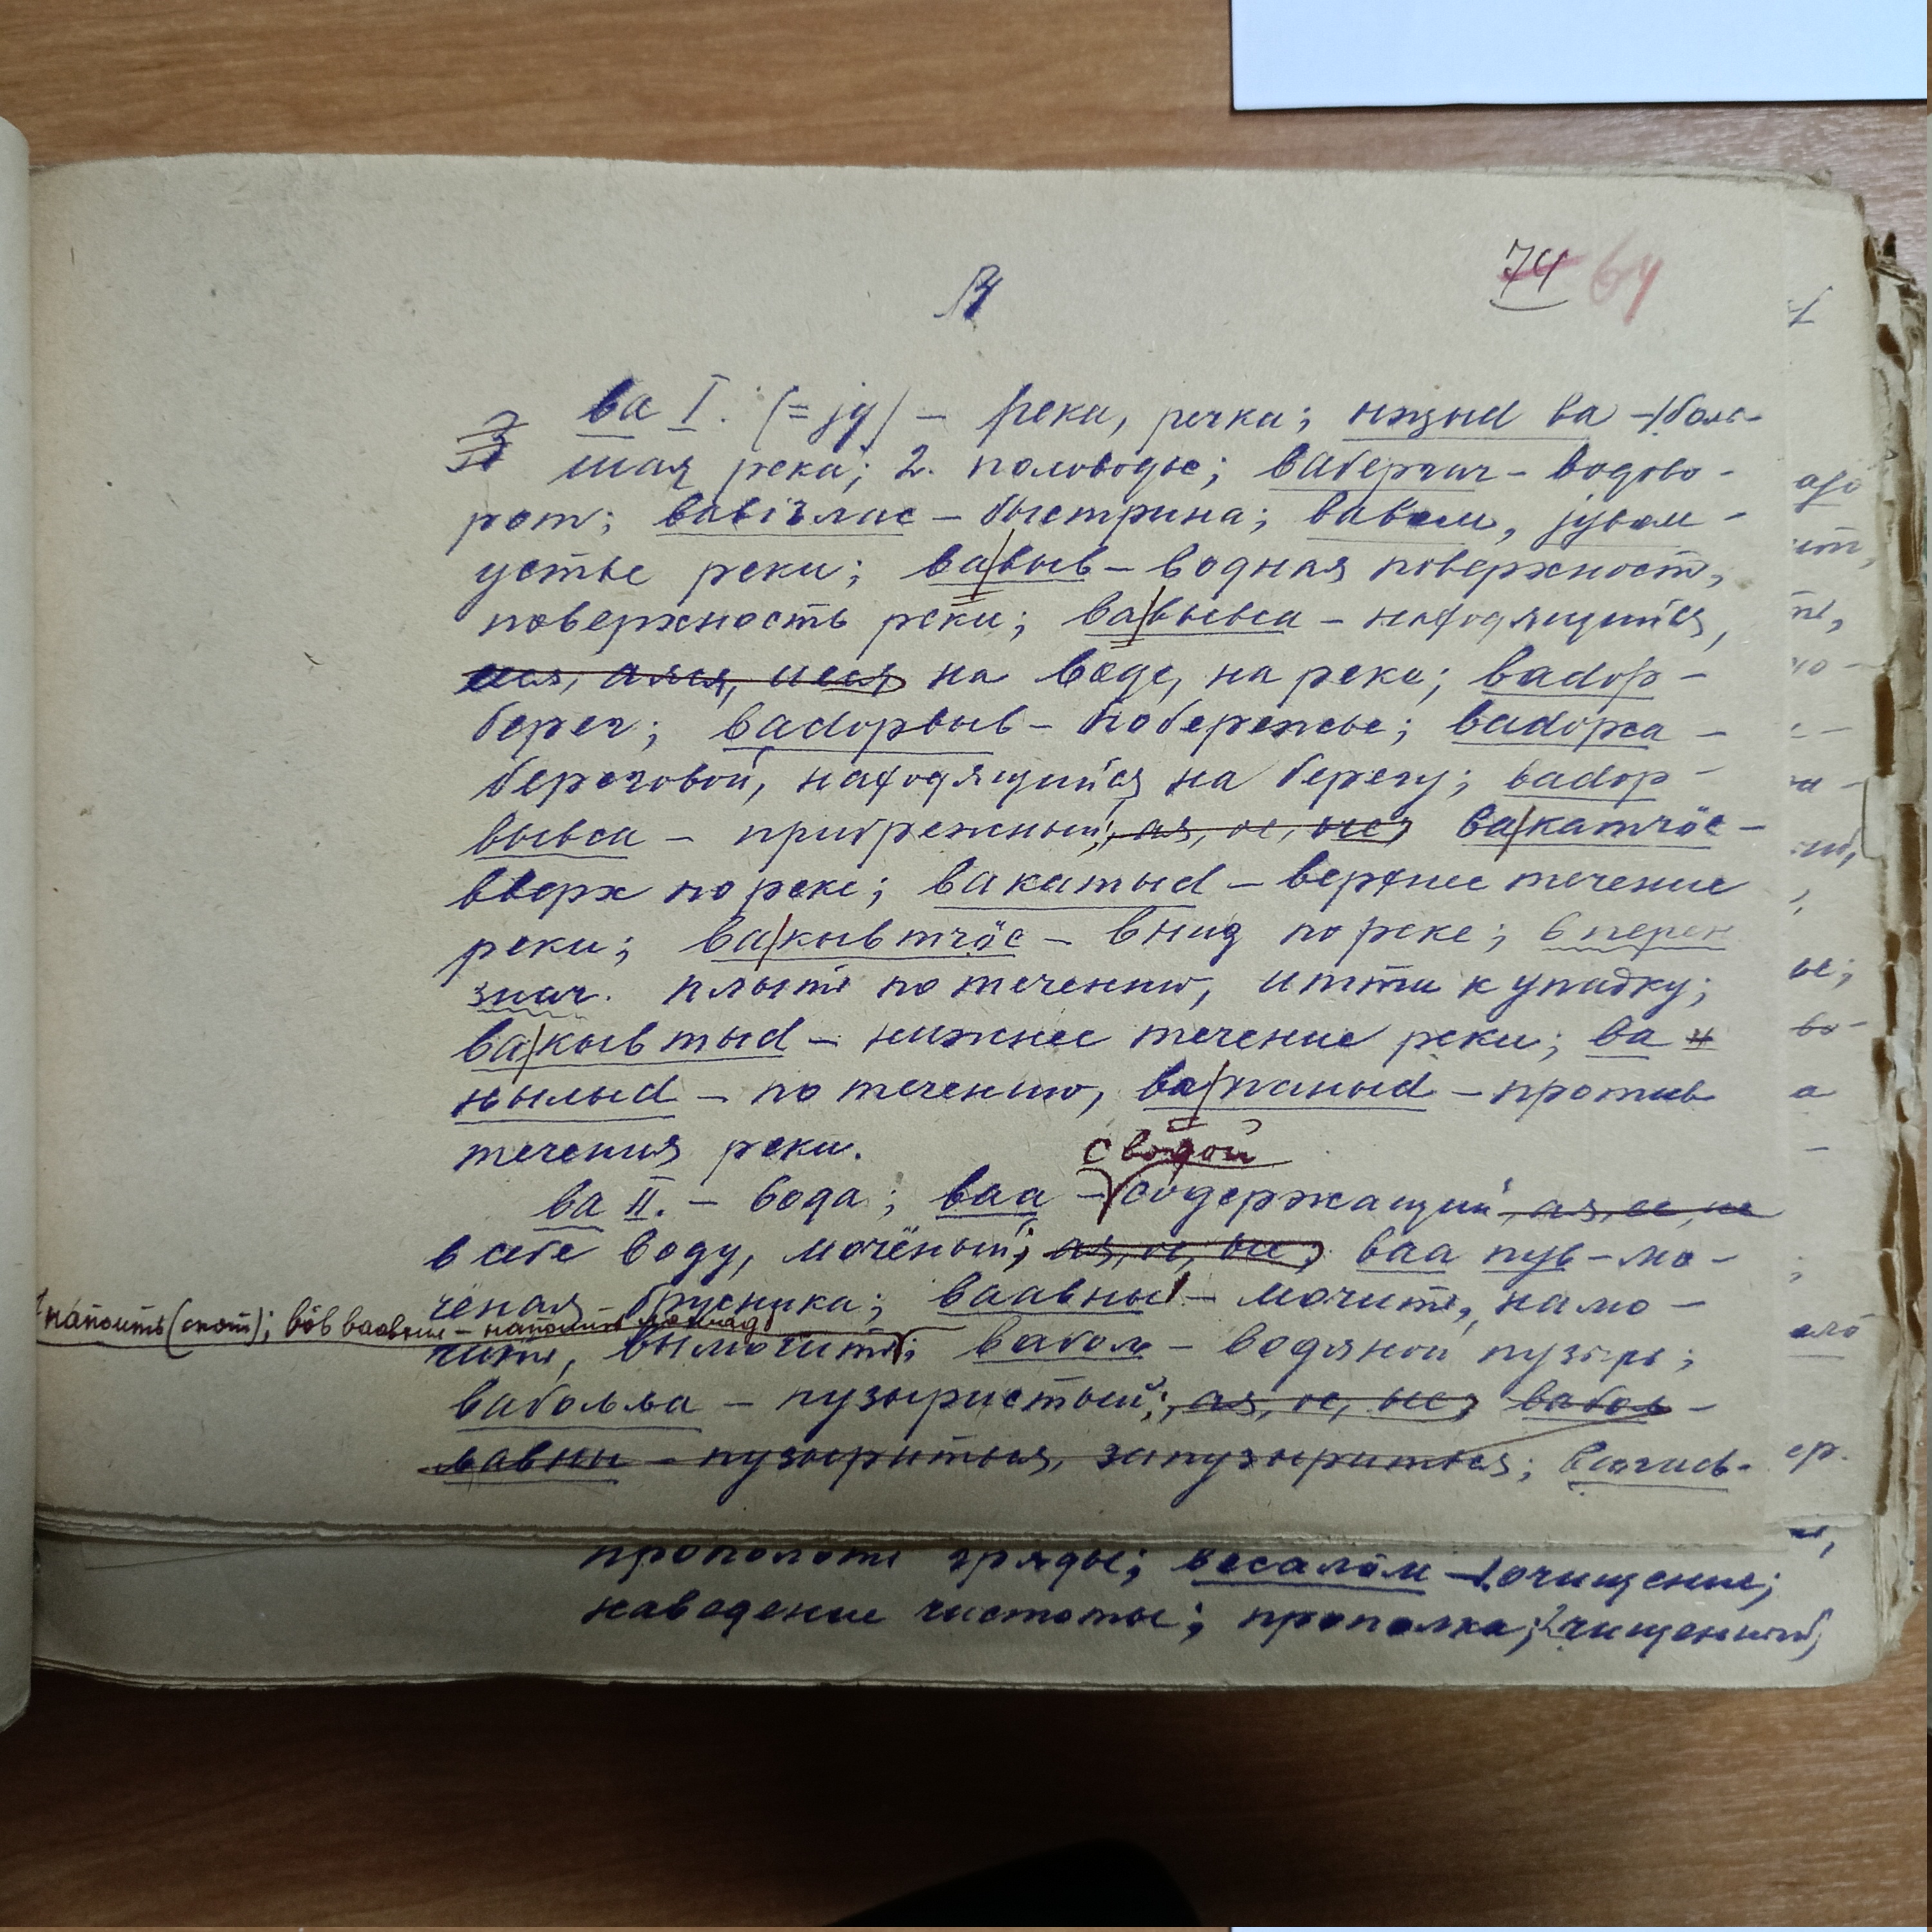 74 64
ва I. (= jу) – река, речка; ыжыd ва – боль-
шая река; 2. половодье; вабергач – водово-
рот; вавізлас – быстрина; вавом, jувом –
устье реки; ва/выв – водная поверхность,
поверхность реки; ва/вывса – находящийся,
на воде, на реке; ваdор –
берег; ваdорвыв – побережье; ваdорса –
береговой, находящийся на берегу; ваdор-
вывса – прибрежный; ая, ое, ые; ва/катчӧс –
вверх по реке; вакатыd – верхнее течение
реки; ва/кывтчӧс – вниз по реке; в перен
знач. плыть по течению, итти к упадку;
ва/кывтыd – нижнее течение реки; ва н
ылыd – по течению, ва/паныd – против
течения реки.
с водой
ва II. – вода; ваа – содержащий, ая, ее, ие
в себе воду, мочёный; ая, ое, ые; ваа пув – мо-
ченая брусника; ваавны – мочить, намо-
напоить (скот); вӧв ваавны – напоить лошадь
чить, вымочить; ваболь – водяной пузырь;
вабольла – пузыристый; ая, ое, ые; вабол-
лавны – пузыриться, запузыриться;
прополоть гряды; весалӧм – 1. очищение;
наведение чистоты; прополка; 2 чищенный;